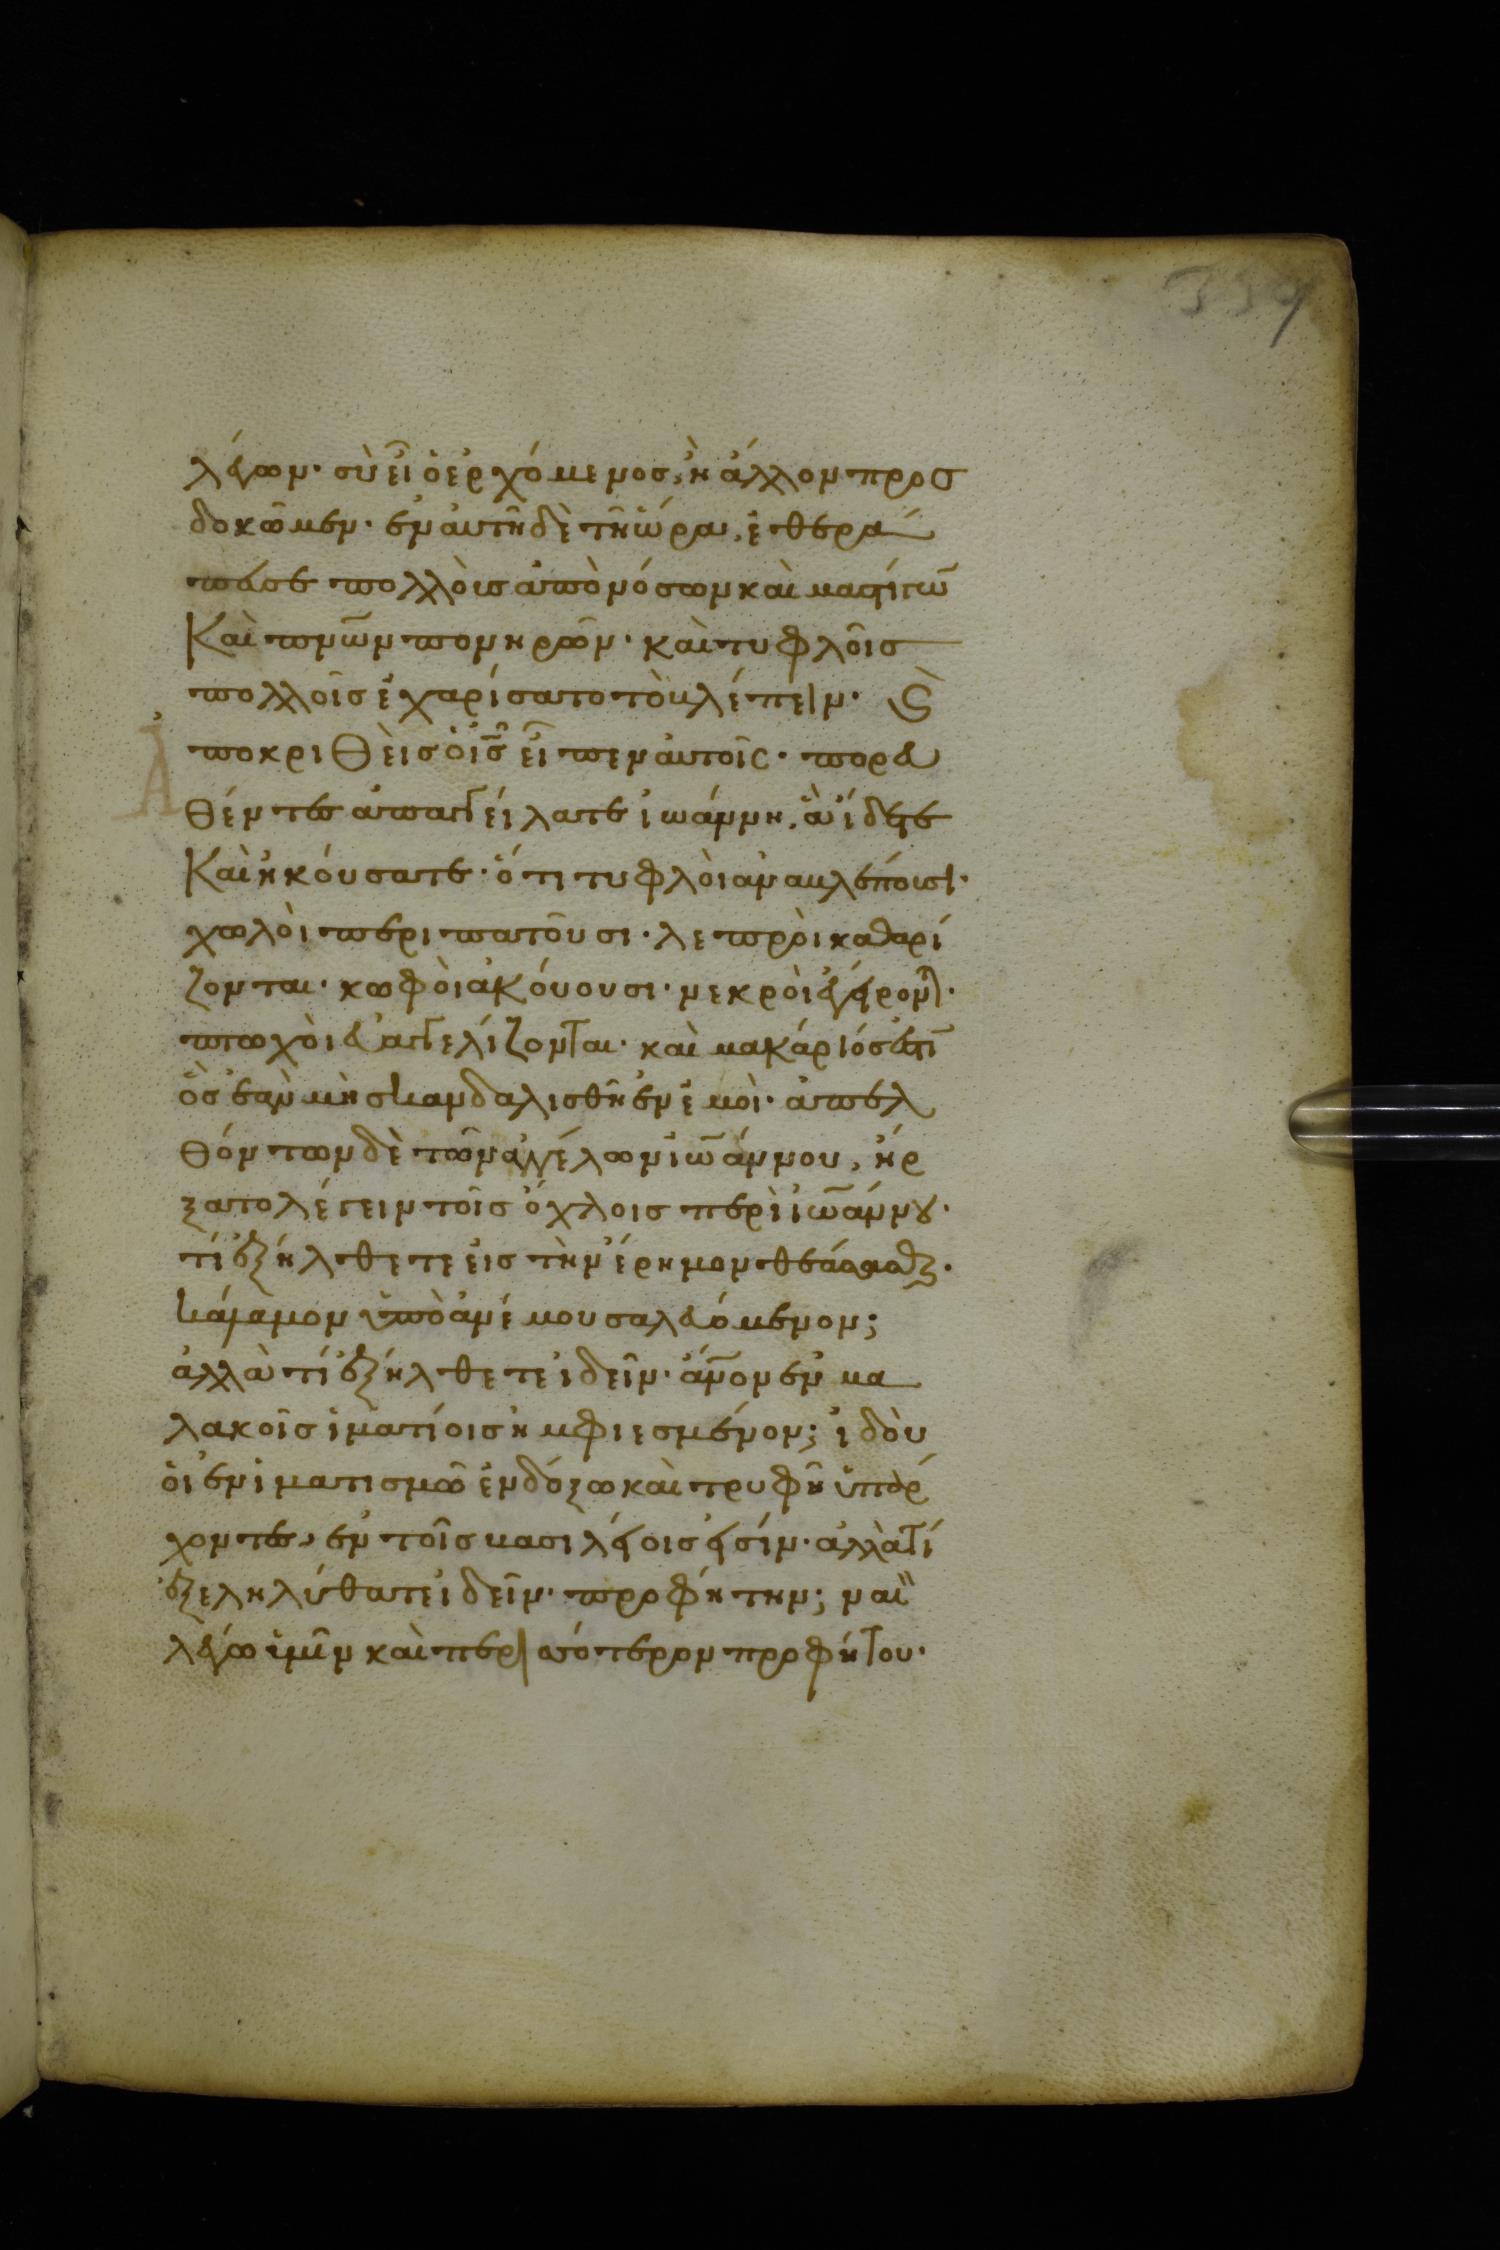 339
λέγων· σὺ εἶ ὁ ἐρχόμενος, ἢ ἄλλον προσ
δοκῶμεν· ἐν αὐτῇ δὲ τῇ ὥρα, ἐθερά
πευσε πολλοὺς ἀπὸ νόσων καὶ μαστίγω̅
Καὶ πν̅ων πονηρῶν· καὶ τυφλοῖς
πολλοῖς ἐχαρίσατο τὸ βλέπειν· Ὲ
Ἀ ποκριθεὶς ὁ ι̅ς̅ εἶπεν αὐτοῖς· πορευ
θέντες ἀπαγγείλατε ἰωάννη, ἃ εἴδετε
Καὶ ἠκούσατε· ὅτι τυφλοὶ ἀναβλέπουσι·
χωλοὶ περιπατοῦσι· λεπροὶ καθαρί
ζονται· κωφοὶ ἀκούουσι· νεκροὶ ἐγείρον̅τ·
πτωχοὶ εὐαγγελίζονται· καὶ μακάριός ἐστι̅
ὃς ἐὰν μὴ σκανδαλισθῇ ἐν ἐμοὶ· ἀπελ
θόντων δὲ τῶν ἀγγέλων ἰω̅άννου, ἤρ
ξατο λέγειν τοῖς ὄχλοις περὶ ἰω̅άννου·
τί ἐξήλθετε εἰς τὴν ἔρημον θεάσασθαι·
κάλαμον ὑπὸ ἀνέμου σαλευόμενον;
ἀλλὰ τί ἐξήλθετε ἰδεῖν· ἄν̅ον ἐν μα
λακοῖς ἱματίοις ἠμφιεσμένον; ἰδοὺ
οἱ ἐν ἱματισμῶ ἐνδόξω καὶ τρυφῇ ὑπάρ
χοντες, ἐν τοῖς βασιλείοις εἰσίν· ἀλλὰ τί
ἐξεληλύθατε ἰδεῖν· προφήτην; ναὶ
λέγω ὑμῖν καὶ περισσότερον προφήτου·